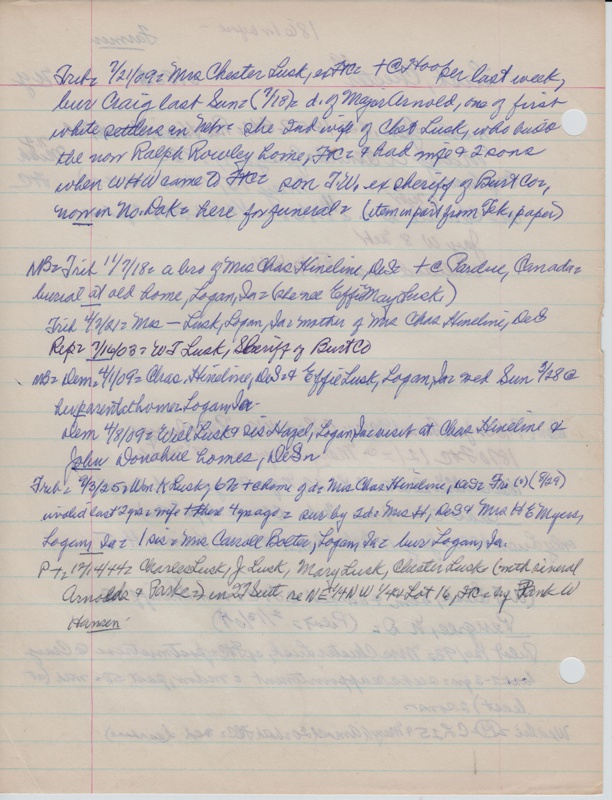 Trib= 7/21/09= Mrs Chester Lusk, ex TK= +C Hooper last week,
bur Craig last Sun= (7/18)= d. of Major Arnold, one of first
white settlers in Neb= she 2nd wife of Chet Lusk, who built
the now Ralph Rowley home, TK= & had wife & 2 sons
when WHW came to TK= son T.W. ex sheriff of Burt Co.,
now in No. Dak= here for funeral= (item in part from Tek, paper)
NB= Trib 11/7/18= a bro of Mrs Chas Hineline, DeS= +C Pardue, Canada=
burial at old home, Logan, Ia= (she nee Effie May Lusk,)
Trib 4/2/21= Mrs — Lusk, Logan, Ia= mother of Mrs Chas Hineline, DeS
Rep= 7/14/03= W T Lusk, Sheriff of Burt Co
NB= Dem= 4/1/09= Chas. Hineline, DeS= & Effie Lusk, Logan, Ia= wed Sun 3/28 @
her parents home Logan, Ia=
Dem 4/8/09= Will Lusk & sis Hazel, Logan, Ia= visit at Chas Hineline &
John Donahue homes, DeS=
Trib= 9/3/25= Wm K Lusk, +C home of d= Mrs Chas Hineline, DeS= Fri (8/29)
invalid last 2 yrs= wife + there 4 yrs ago= sur by 2 ds= Mrs H, DeS & Mrs H E Myers,
Logan, Ia= 1 sis= Mrs Carroll Bolter, Logan, Ia= bur Logan, Ia.
Charles Lusk, J Lusk, Mary Lusk, Chester Lusk (with several
Arnolds & Parke) in 27 Burt NE 1/4 NW 1/4 Lot 16, TK= by Frank W
Hansen